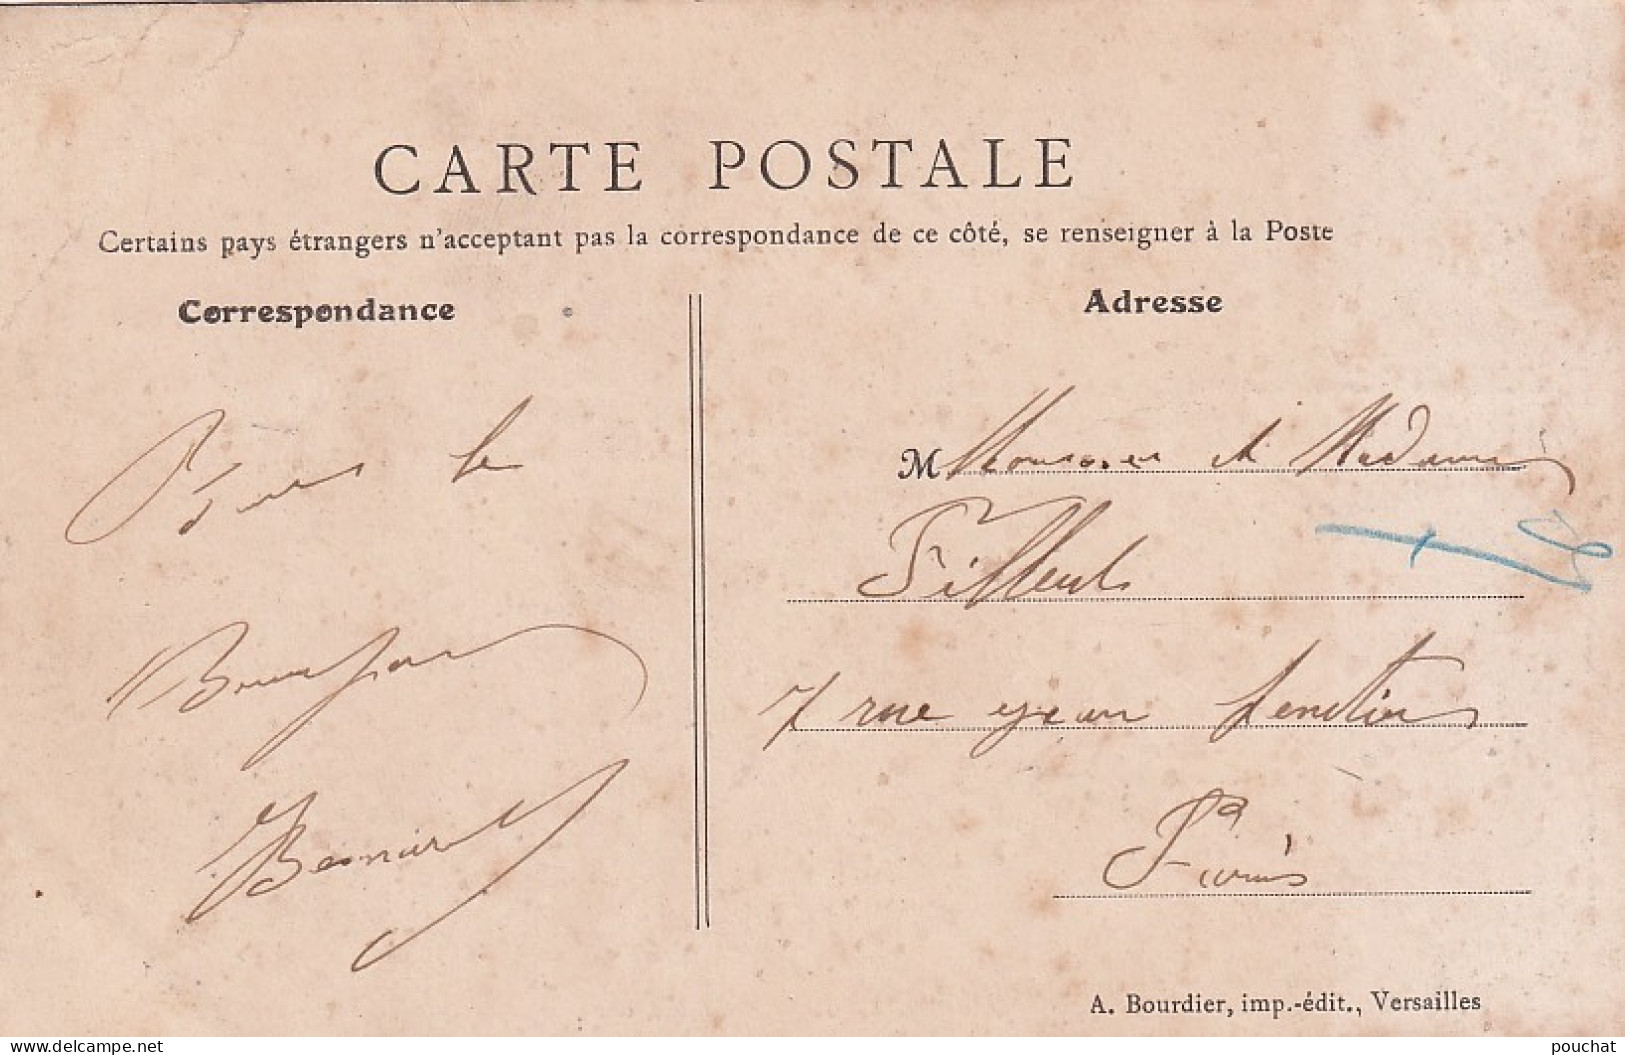 CARTE POSTALE
Certains pays étrangers n'acceptant pas la correspondance de ce côté, se renseigner à la Poste
Correspondance
Adresse
le
Bernard
M Monsieur et Madame
Filleul
7 rue jean
Paris
A. Bourdier, imp.-édit., Versailles
delcampe.net
pouchat